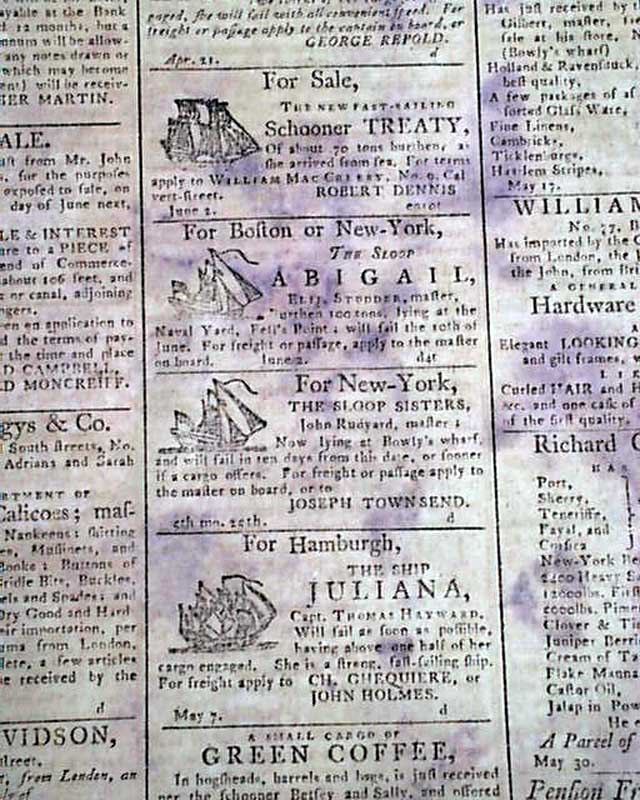 ayable at the Bank
12 months, but a
num will be allow-
any notes drawn or
which may become
be receiv-
ER MARTIN.
ALE.
ust from Mr. John
s, for the purposes
exposed to sale, on
day of June next,
LE & INTEREST
are to a PIECE of
end of Commerce-
about 106 feet, and
or canal, adjoining
ngers.
en on application to
d the terms of pay-
the time and place
D CAMPBELL,
D MONCREIFF.
gys & Co.
South streets, No.
Adrians and Sarah
RTMENT OF
Calicoes; mus-
Nankeens; shirting
es, Muslinets, and
Books; Buttons of
Bridle Bits, Buckles,
els and Spades; and
Dry Good and Hard-
eir importation, per
uma from London,
lete, a few articles
be received by the
d
VIDSON,
street.
from London, an
gaged, she will sail with all convenient speed. For
freight or passage apply to the captain on board, or
GEORGE REPOLD.
Apr. 21. d
For Sale,
THE NEW FAST-SAILING
Schooner TREATY,
Of about 70 tons burthen, as
she arrived from sea. For terms
apply to WILLIAM MAC CREERY, No. 9, Cal
vert-street. ROBERT DENNIS
June 2. eo10t
For Boston or New-York,
THE SLOOP
ABIGAIL,
ELIJ. STUDDER, master,
Burthen 100 tons, lying at the
Naval Yard, Fell's Point; will sail the 10th of
June. For freight or passage, apply to the master
on board. June 2. d4t
For New-York,
THE SLOOP SISTERS,
John Rudyard, master;
Now lying at Bowly's wharf,
and will sail in ten days from this date, or sooner
if a cargo offers. For freight or passage apply to
the master on board, or to
JOSEPH TOWNSEND.
5th mo. 25th. d
For Hamburgh,
THE SHIP
JULIANA,
Capt. THOMAS HAYWARD,
Will sail as soon as possible,
having above one half of her
cargo engaged. She is a strong, fast-sailing ship.
For freight apply to CH. GHEQUIERE, or
JOHN HOLMES.
May 7. d
A SMALL CARGO OF
GREEN COFFEE,
In hogsheads, barrels and bags, is just received
per the schooner Betsey and Sally, and offered
Has just received by
Gilbert, master,
sale at his store, N
(Bowly's wharf)
Holland & Ravensduck,
best quality,
A few packages of
sorted Glass Ware,
Fine Linens,
Cambricks,
Ticklenburgs,
Harlem Stripes,
May 17.
WILLIAM
No. 77, B
Has imported by the
from London, the
the John, from
A GENERAL
Hardware
Elegant LOOKING
and gilt frames,
Curled HAIR and
&c. and one cask of
of the first quality.
Richard
HAS
Port,
Sherry,
Teneriffe,
Fayal, and
Corsica
New-York
2400 Heavy
12000lbs.
2000lbs. Pim
Clover &
Juniper Berri
Cream of Ta
Flake Manna
Castor Oil,
Jalap in Pow
He
A Parcel of
May 30.
Penson